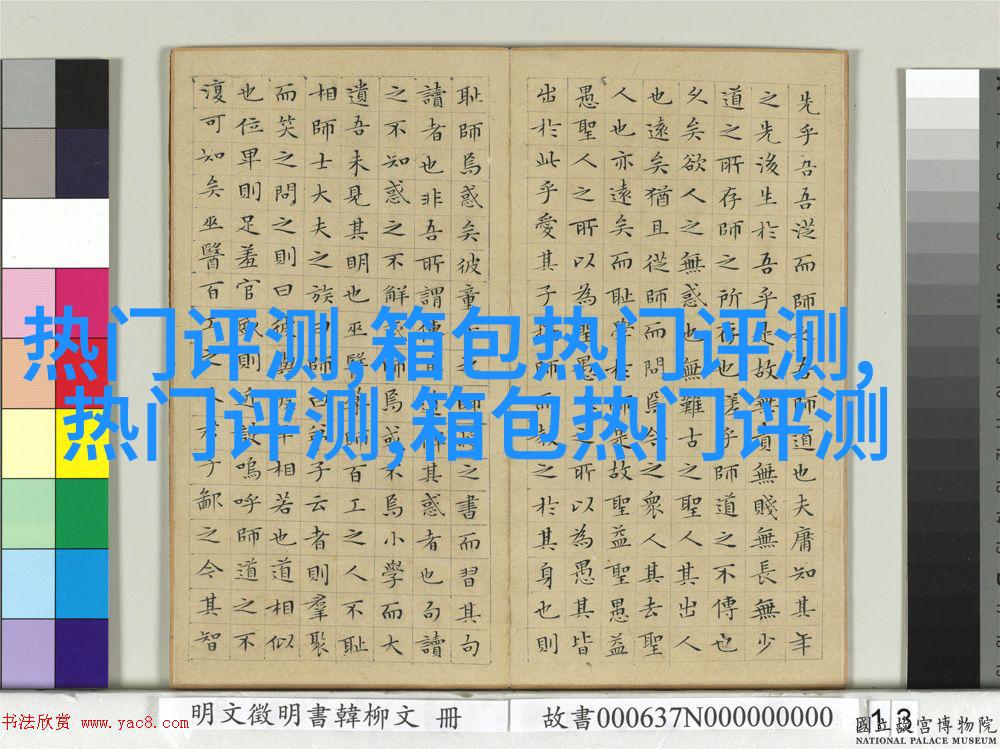 热门评测,箱包热门评测,
热门评测,箱包热门评测
先乎吾吾從而師之吾師道也夫庸知其年
之先後生於吾乎是故無貴無賤無長無少
道之所存師之所存也嗟乎師道之不傳也
久矣欲人之無惑也無難古之聖人其出人
也遠矣猶且從師而問焉今之衆人其去聖
人也亦遠矣而恥學於師是故聖益聖愚益
愚聖人之所以為聖愚人之所以為愚其皆
出於此乎愛其子擇師而教之於其身也則
恥師焉惑矣彼童子之師授之書而習其句
讀者也非吾所謂傳其道解其惑者也句讀
之不知惑之不解或師焉或不焉小學而大
遺吾未見其明也巫醫樂師百工之人不恥
相師士大夫之族曰師曰弟子云者則羣聚
而笑之問之則曰彼與彼年相若也道相似
也位卑則足羞官歟則近諛嗚呼師道之不
復可知矣巫醫百工之人君子鄙之今其智
明文徵明書韓柳文 冊
故書000637N000000000
13
书法欣赏 www.yac8.com
國立故宮博物院
NATIONAL PALACE MUSEUM